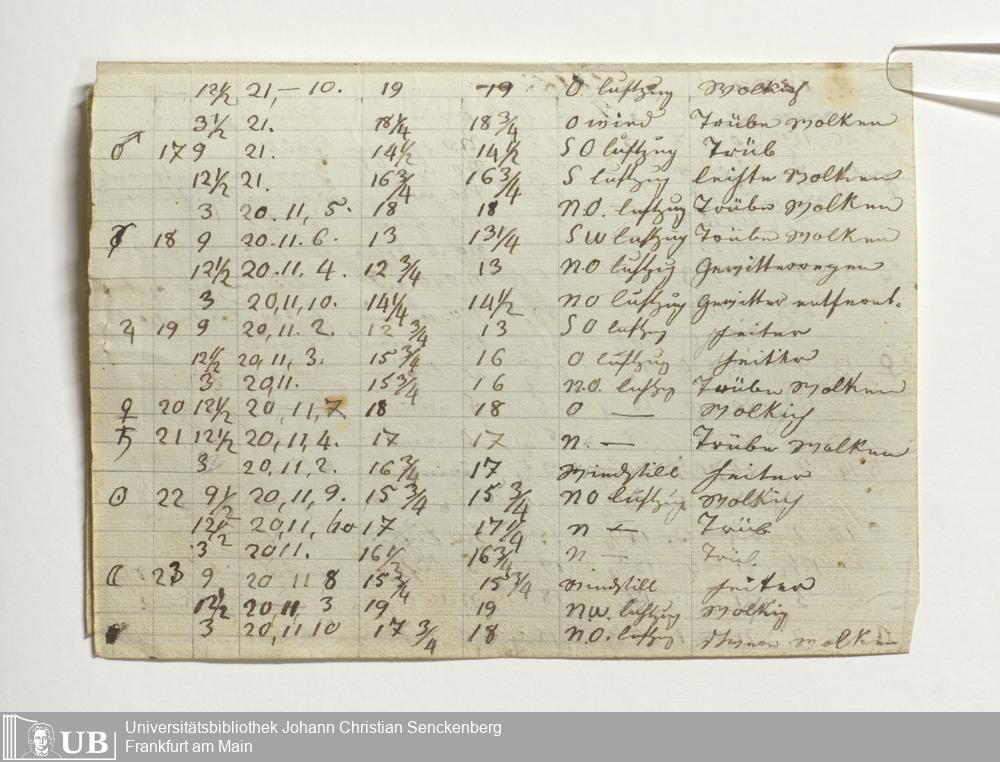 12½ 21, – 10. 19 19 O luftzug Wolkich
3½ 21. 18¼ 18¾ O wind Trübe Wolken
♂ 17 9 21. 14½ 14½ S O luftzug Trüb
12½ 21. 16¾ 16¾ S luftzug leichte Wolken
3 20. 11, 5. 18 18 N.O. luftzug Trübe Wolken
☿ 18 9 20. 11. 6. 13 13¼ S W luftzug Trübe Wolken
12½ 20. 11, 4. 12¾ 13 N.O luftzug Gewitterregen
3 20, 11, 10. 14¼ 14½ N O luftzug Gewitter entfernt.
♃ 19 9 20, 11. 2. 12¾ 13 S O luftzug heiter
12½ 20, 11, 3. 15¾ 16 O luftzug heiter
3 20, 11. 15¾ 16 N.O. luftzug Trübe Wolken
♀ 20 12½ 20, 11, 7 18 18 O — Wolkich
♄ 21 12½ 20, 11, 4. 17 17 N. — Trübe Wolken
3 20, 11, 2. 16¾ 17 Windstill heiter
☉ 22 9½ 20, 11, 9. 15¾ 15¾ N O luftzug Wolkich
12½ 20, 11, 17 17¼ N — Trüb
3 20, 11. 16½ 16¾ N — Trüb.
☾ 23 9 20 11 8 15¾ 15¾ Windstill heiter
12½ 20, 11, 3 19 19 N W. luftzug Wolkig
3 20, 11 10 17¾ 18 N.O. luftzug Wolken
UB
Universitätsbibliothek Johann Christian Senckenberg
Frankfurt am Main